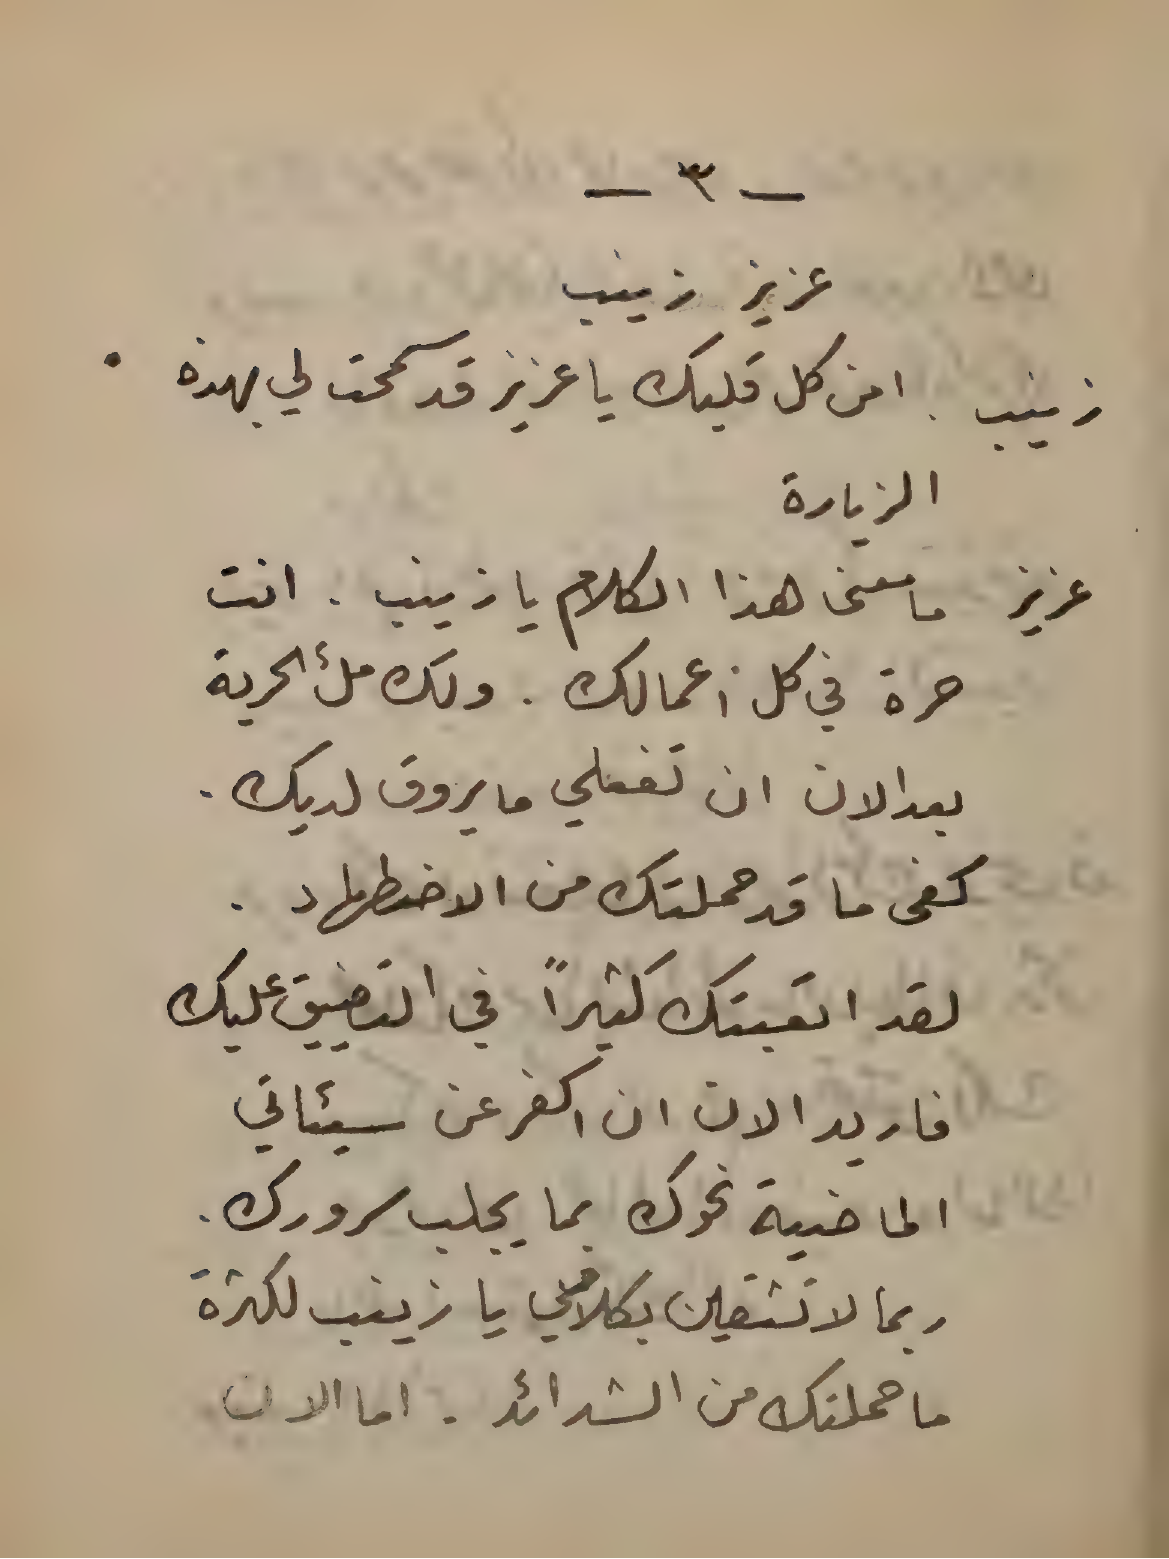 — ٣ —
عزيز زينب
زينب . امن كل قلبك يا عزيز قد سمحت لي بهذه
الزيارة
عزيز ما معنى هذا الكلام يا زينب . انت
حرة في كل اعمالك . ولك ملئ الحرية
بعد الان ان تفعلي ما يروق لديك .
كفى ما قد حملتك من الاضطهاد .
لقد اتعبتك كثيراً في التضييق عليك
فاريد الان ان اكفر عن سيئاتي
الماضية نحوك بما يجلب سرورك .
ربما لا تثقين بكلامي يا زينب لكثرة
ما حملتك من الشدائد . اما الان